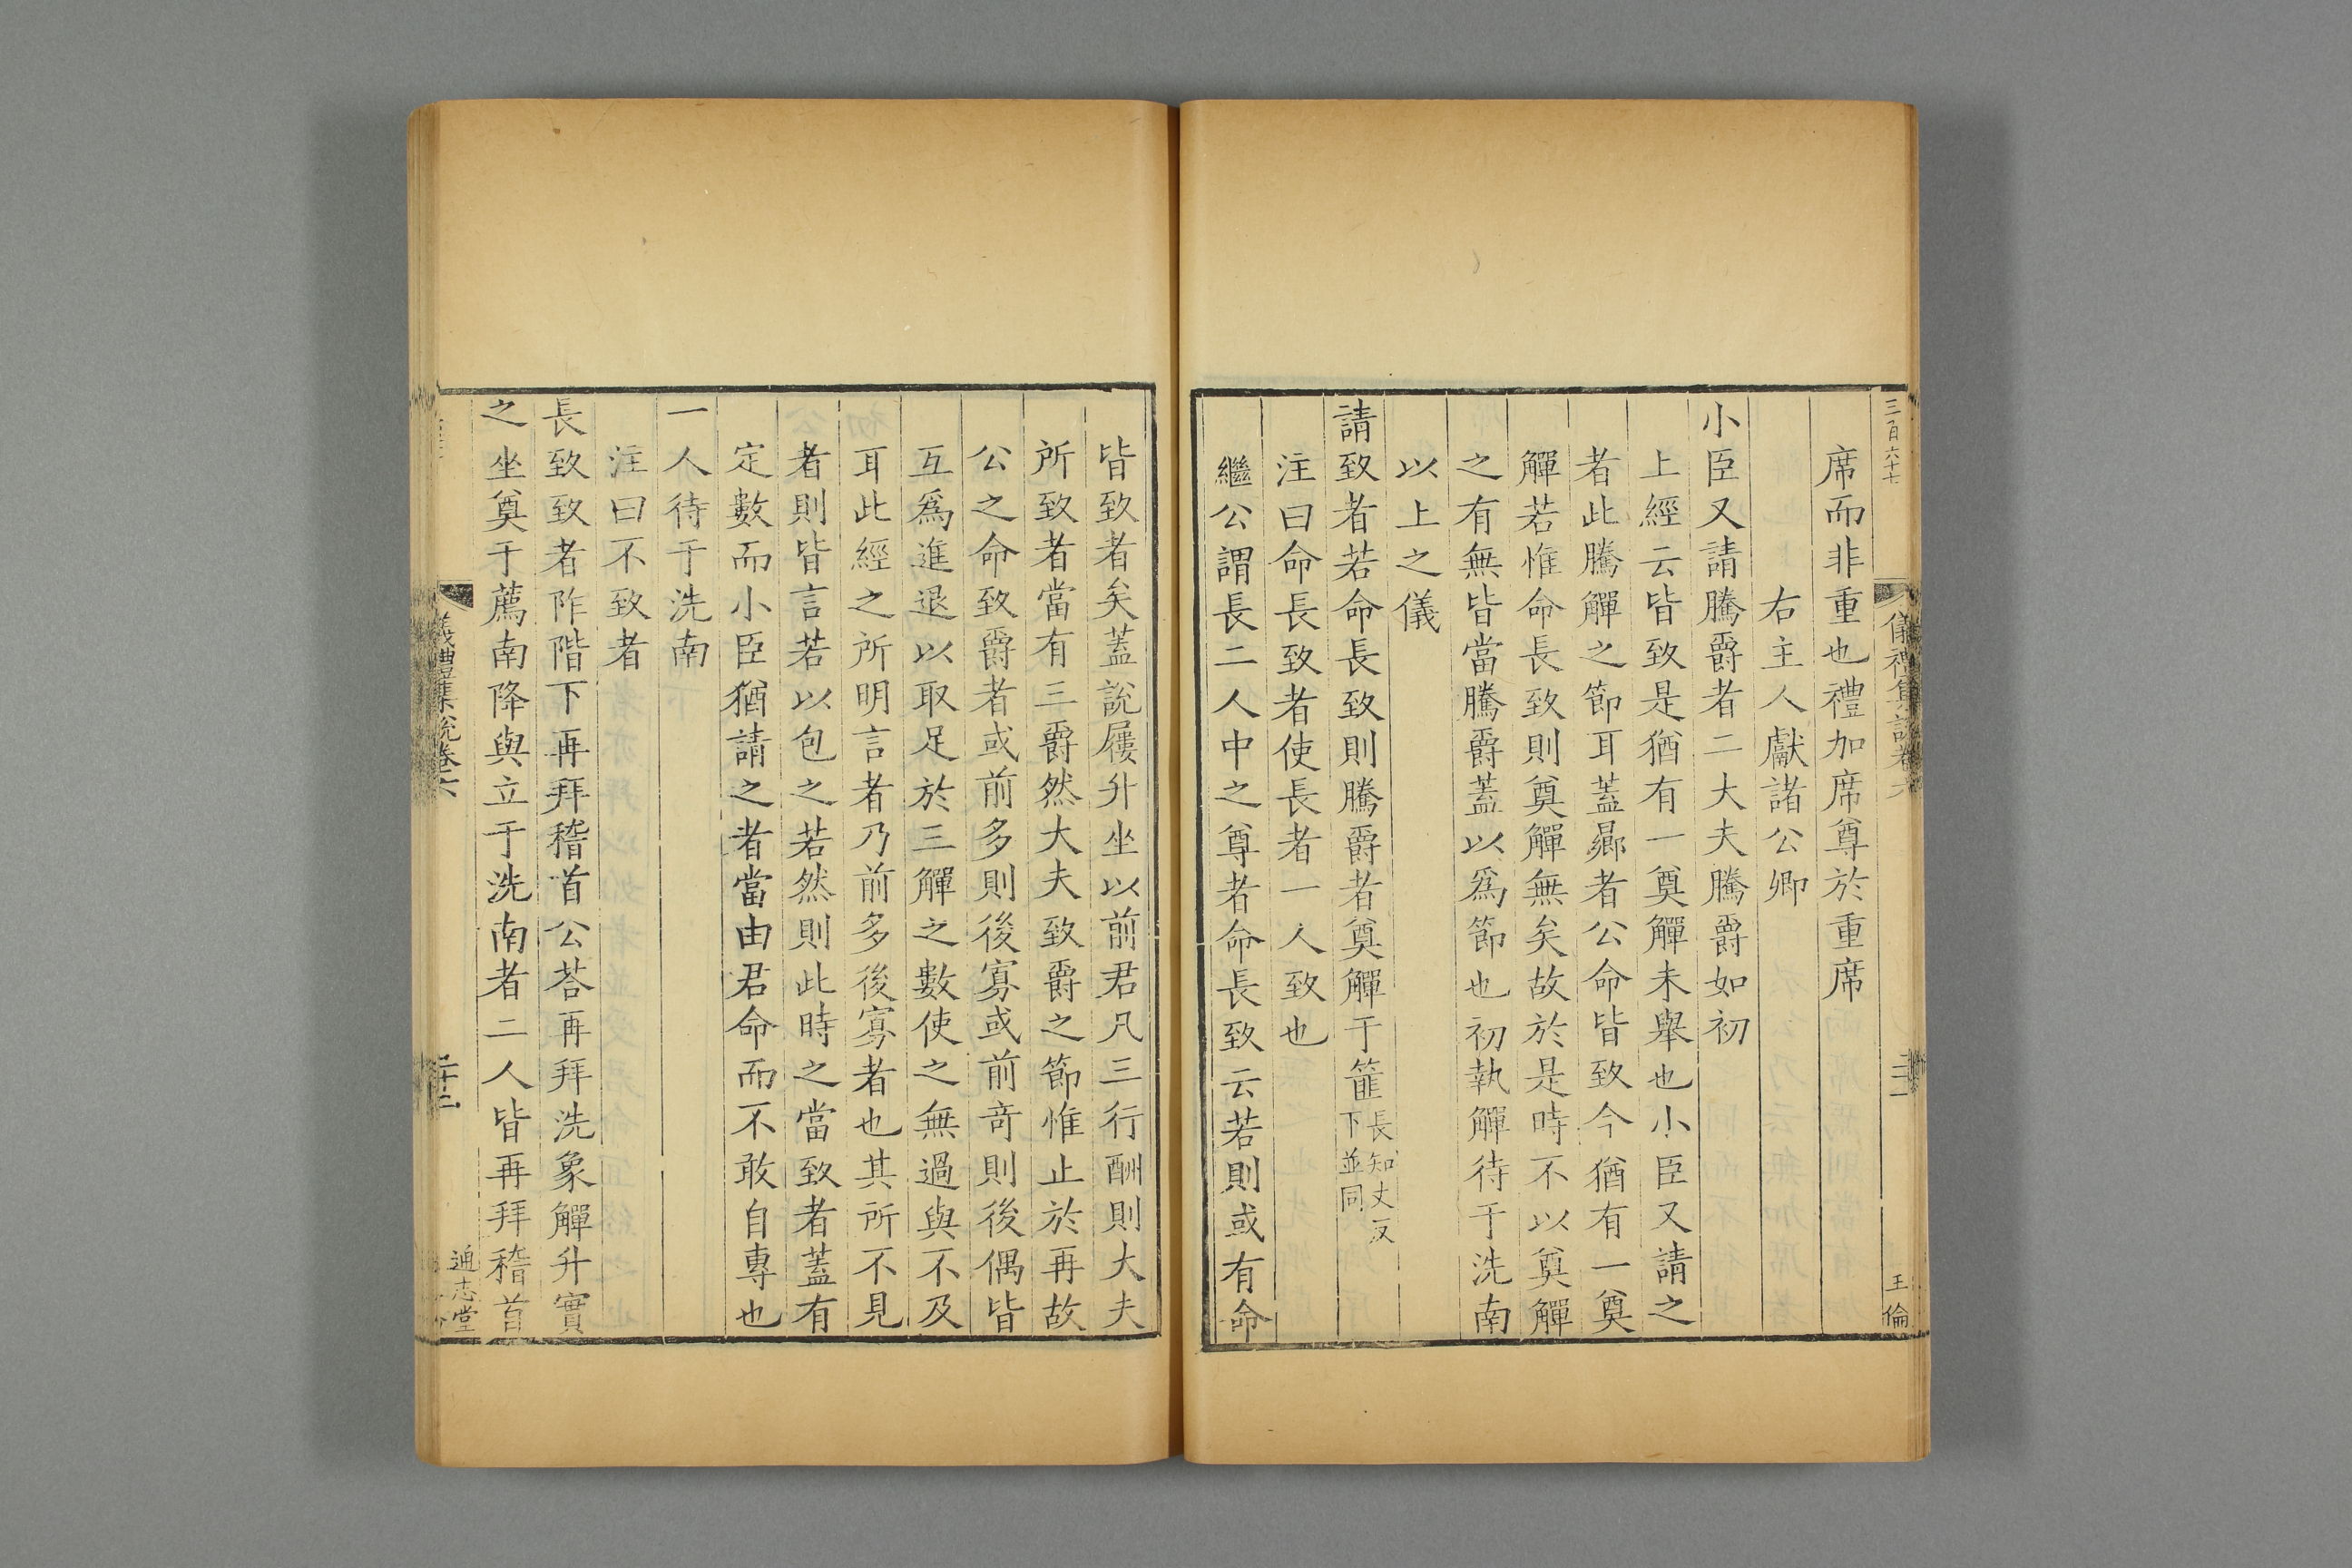 三百六十七
儀禮集說卷六
王倫
席而非重也禮加席尊於重席
右主人獻諸公卿
小臣又請騰爵者二大夫騰爵如初
上經云皆致是猶有一奠觶未舉也小臣又請之
者此騰觶之節耳蓋曏者公命皆致今猶有一奠
觶若惟命長致則奠觶無矣故於是時不以奠觶
之有無皆當騰爵蓋以爲節也初執觶待于洗南
以上之儀
請致者若命長致則騰爵者奠觶于篚長知丈反下並同
注曰命長致者使長者一人致也
繼公謂長二人中之尊者命長致云若則或有命
皆致者矣蓋說屨升坐以前君凡三行酬則大夫
所致者當有三爵然大夫致爵之節惟止於再故
公之命致爵者或前多則後寡或前奇則後偶皆
互爲進退以取足於三觶之數使之無過與不及
耳此經之所明言者乃前多後寡者也其所不見
者則皆言若以包之若然則此時之當致者蓋有
定數而小臣猶請之者當由君命而不敢自專也
一人待于洗南
注曰不致者
長致致者阼階下再拜稽首公荅再拜洗象觶升實
之坐奠于薦南降與立于洗南者二人皆再拜稽首
儀禮集說卷六
通志堂